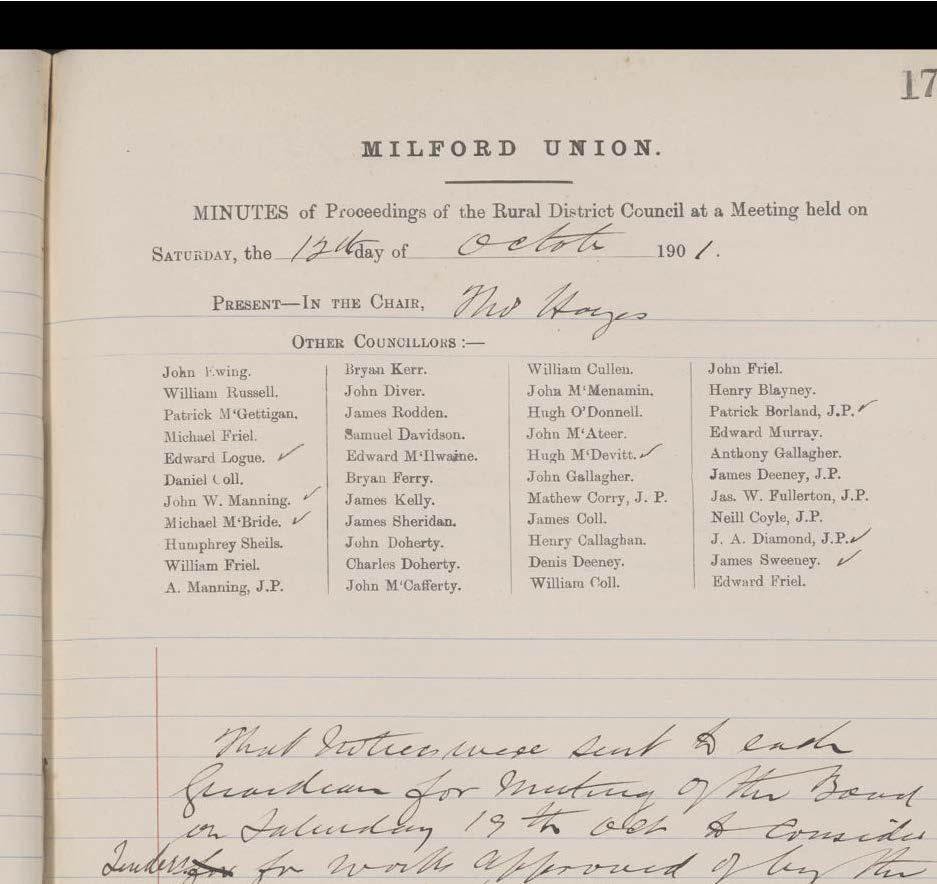 17
MILFORD UNION.
MINUTES of Proceedings of the Rural District Council at a Meeting held on
SATURDAY, the 12th day of Octobr 1901.
PRESENT—IN THE CHAIR, Thos Hayes
OTHER COUNCILLORS :—
John Ewing.
William Russell.
Patrick M'Gettigan.
Michael Friel.
Edward Logue. ✓
Daniel Coll.
John W. Manning. ✓
Michael M'Bride. ✓
Humphrey Sheils.
William Friel.
A. Manning, J.P.
Bryan Kerr.
John Diver.
James Rodden.
Samuel Davidson.
Edward M'Ilwaine.
Bryan Ferry.
James Kelly.
James Sheridan.
John Doherty.
Charles Doherty.
John M'Cafferty.
William Cullen.
John M'Menamin.
Hugh O'Donnell.
John M'Ateer.
Hugh M'Devitt. ✓
John Gallagher.
Mathew Corry, J. P.
James Coll.
Henry Callaghan.
Denis Deeney.
William Coll.
John Friel.
Henry Blayney.
Patrick Borland, J.P. ✓
Edward Murray.
Anthony Gallagher.
James Deeney, J.P.
Jas. W. Fullerton, J.P.
Neill Coyle, J.P.
J. A. Diamond, J.P. ✓
James Sweeney. ✓
Edward Friel.
That Notices were sent to each
Guardian for Meeting of the Board
on Saturday 19th Oct to consider
Tenders for for works approved of by the